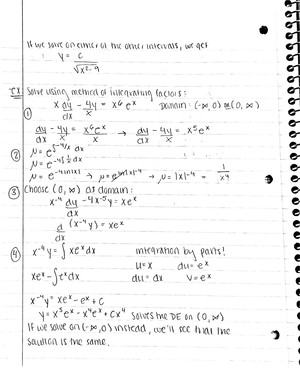 If we solve on either of the other intervals, we get
y = c / √x²-9
EX Solve using method of integrating factors:
x dy/dx - 4y = x⁶eˣ Domain: (-∞, 0) or (0, ∞)
① dy/dx - 4y/x = x⁶eˣ/x → dy/dx - 4y/x = x⁵eˣ
② μ = e^∫-4/x dx
μ = e^-4∫1/x dx
μ = e^-4ln|x| → μ = e^ln|x|^-4 → μ = |x|^-4 = 1/x⁴
③ Choose (0, ∞) as domain:
x⁻⁴ dy/dx - 4x⁻⁵y = xeˣ
d/dx (x⁻⁴y) = xeˣ
④ x⁻⁴y = ∫xeˣdx integration by parts!
u=x du=eˣ
xeˣ - ∫eˣdx du=dx v=eˣ
x⁻⁴y = xeˣ - eˣ + c
y = x⁵eˣ - x⁴eˣ + cx⁴ solves the DE on (0, ∞)
If we solve on (-∞, 0) instead, we'll see that the
solution is the same.